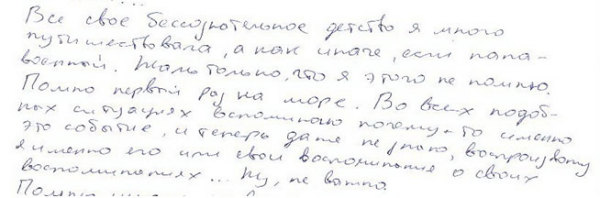 Все свое бессознательное детство я много
путишествовала, а как иначе, если папа-
военный. Жаль только, что я этого не помню.
Помню первый раз на море. Во всех подоб-
ных ситуациях вспоминаю почему-то именно
это событие, и теперь даже не знаю, воспроизвожу
я именно его или свои воспоминания о своих
воспоминаниях... Ну, не важно
Помню